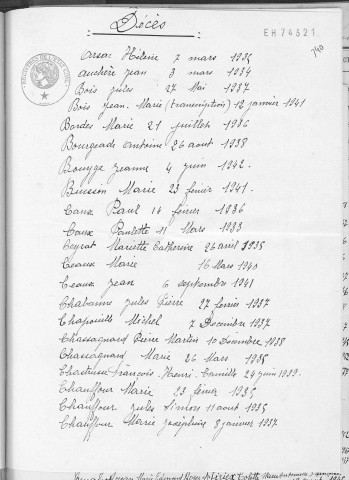 Décès
EH74321
740
Arsac Hélène 7 mars 1935
Auchère Jean 3 mars 1934
Bois Jules 27 Mai 1937
Bois Jean Marie (transcription) 12 janvier 1941
Bordes Marie 21 juillet 1936
Bourgeade Antoine 26 aout 1938
Bouyge Jeanne 4 juin 1942.
Buisson Marie 23 février 1941.
Caux Paul 14 février 1936
Caux Paulette 11 Mars 1933
Ceyrat Mariette Catherine 26 avril 1935
Ceaux Marie 16 Mars 1940
Ceaux Jean 6 septembre 1941
Chabanne Jules Pierre 27 février 1937
Chapouille Michel 7 Décembre 1937
Chassagnard Pierre Martin 10 Décembre 1938
Chassagnard Marie 26 Mars 1935
Chartrieu François Henri Camille 24 juin 1939.
Chauffour Marie 23 février 1935
Chauffour Jules Simon 11 aout 1935
Chauffour Marie Joséphine 8 janvier 1937